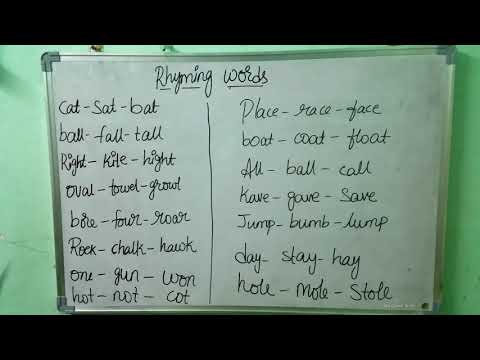 Rhyming words
Cat - Sat - bat
ball - fall - tall
Right - kite - hight
oval - towel - growl
bore - four - roar
Rock - chalk - hawk
one - gun - won
hot - not - cot
Place - race - face
boat - coat - float
All - ball - call
Kave - gave - Save
Jump - bumb - lump
day - stay - hay
hole - mole - Stole